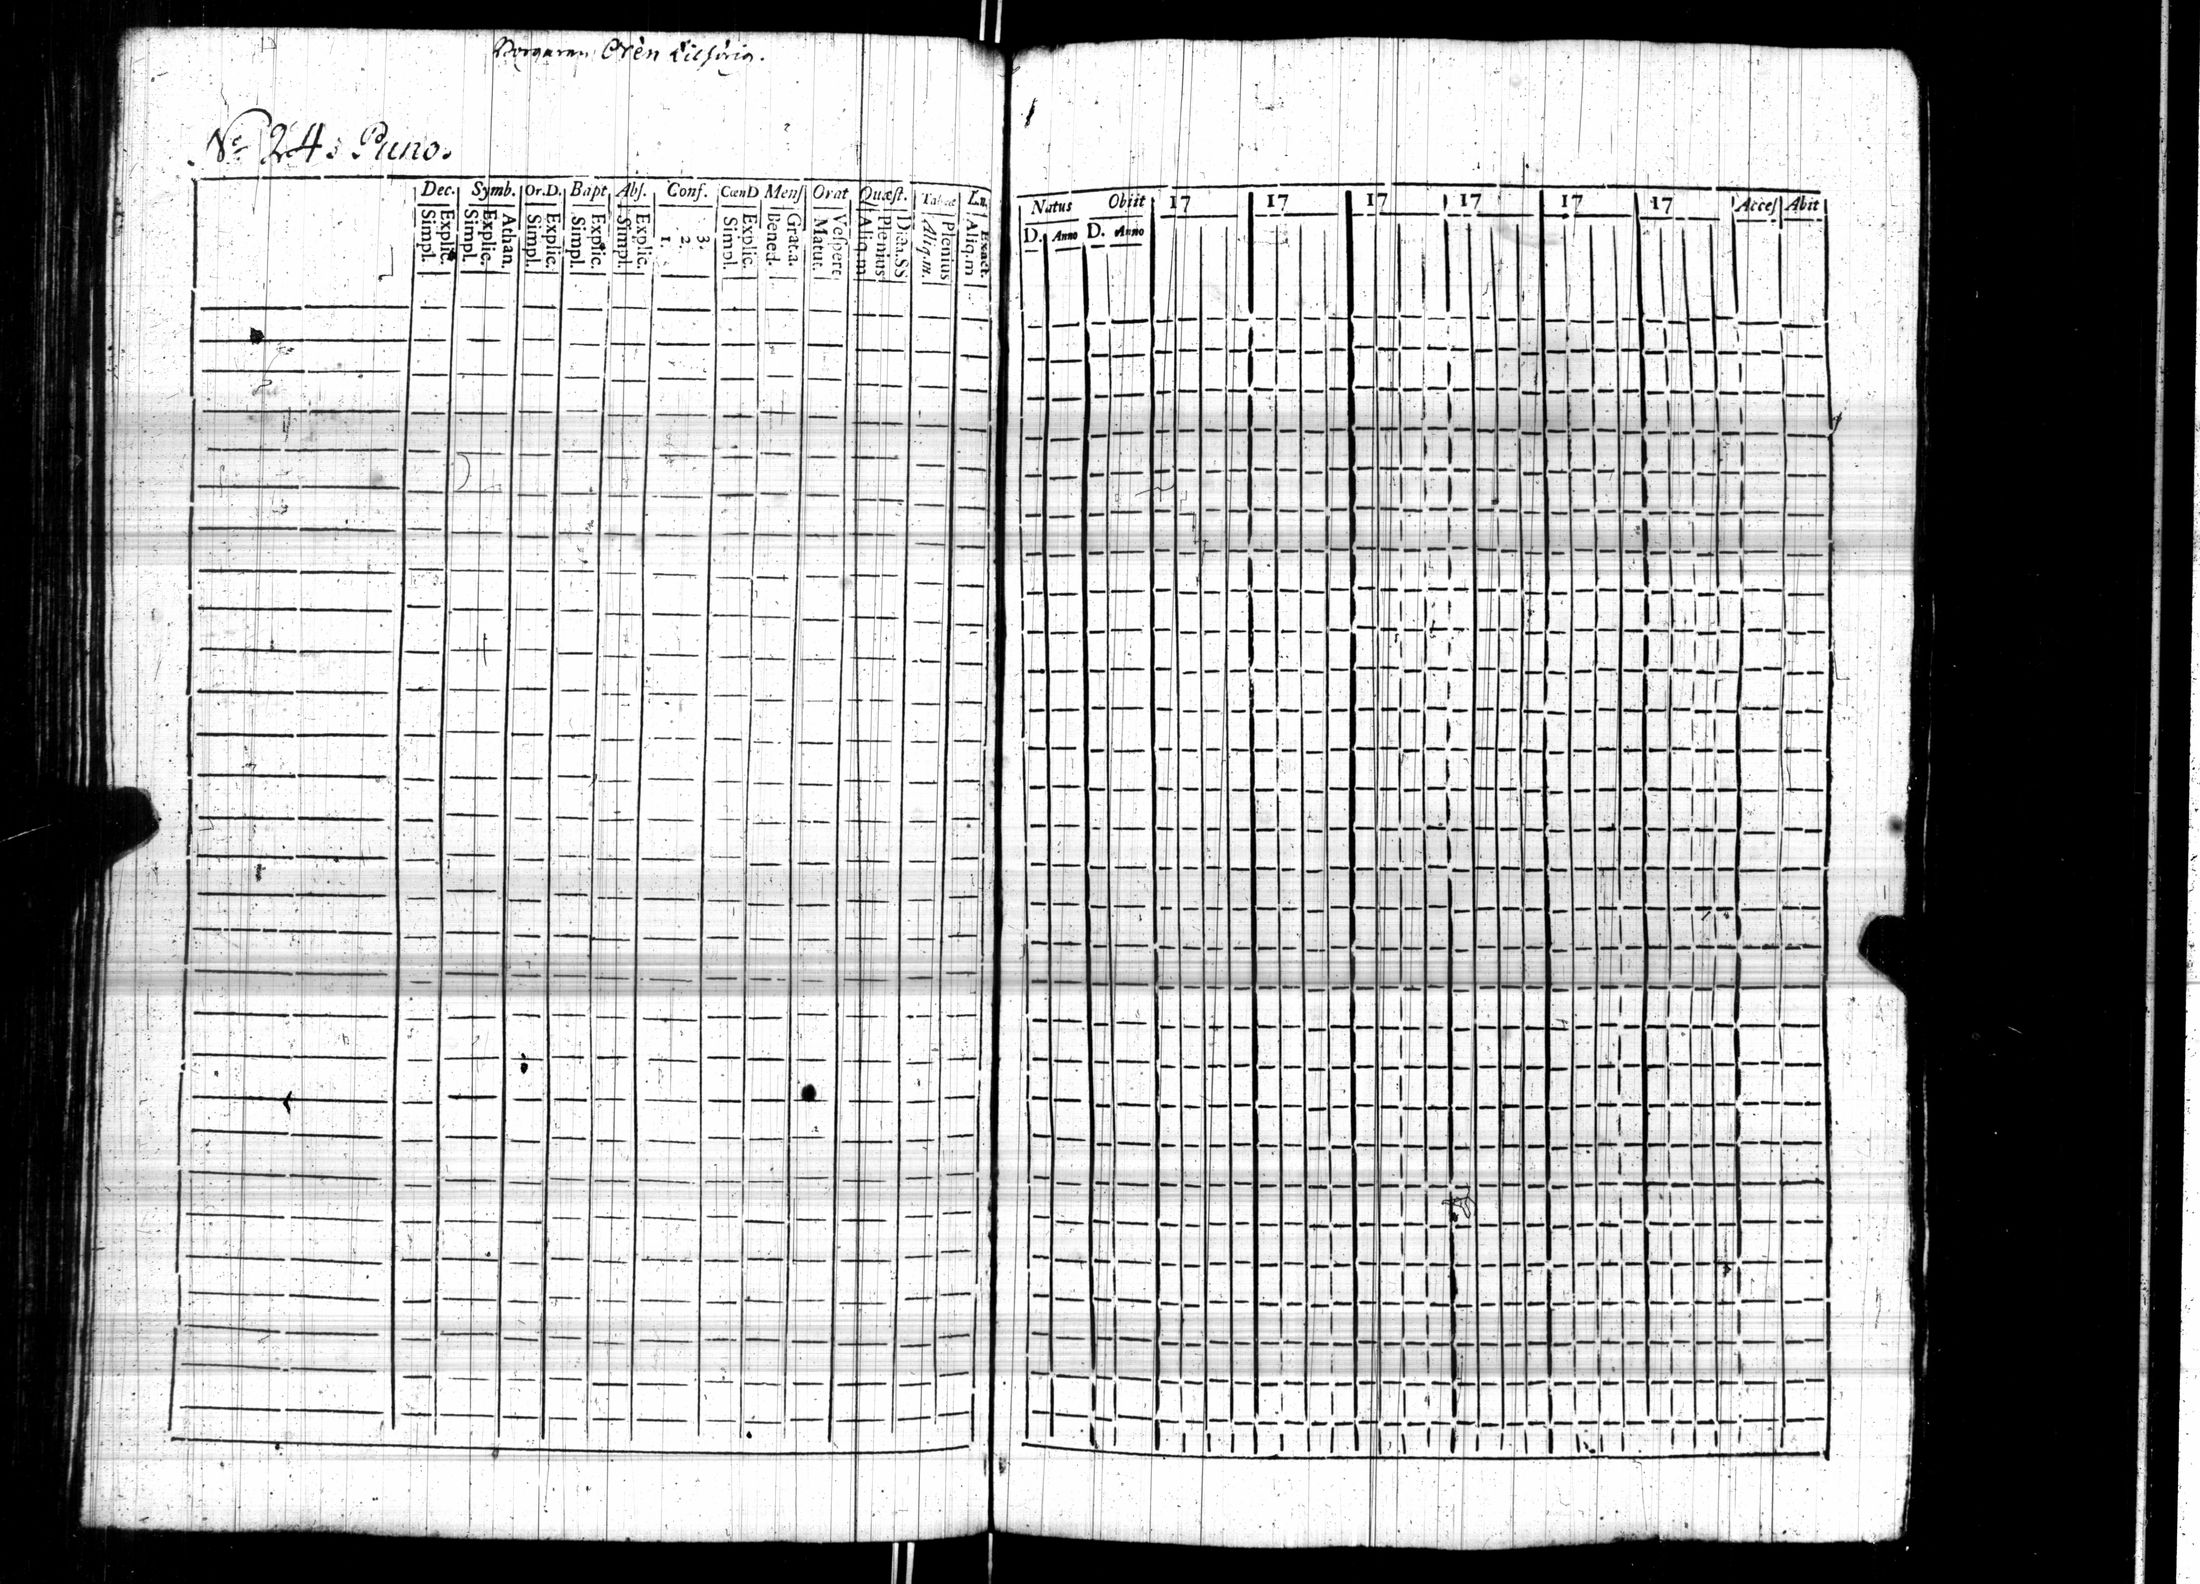 Nº 24: Puno.
Dec. Symb. Or.D. Bapt Abs. Conf. CœnD Mens Orat Quæst. Tabul Lu.
Simpl. Explic. Simpl. Explic. Athan. Simpl. Explic. Simpl. Explic. Simpl. Explic. 1. 2. 3. Simpl. Explic. Bened. Grat.a. Matut. Vespert Aliq.m Plenius Dict.SS Aliq.m. Plenius Aliq.m Exact.
Natus Obiit 17 17 17 17 17 17 Acces Abit
D. Anno D. Anno